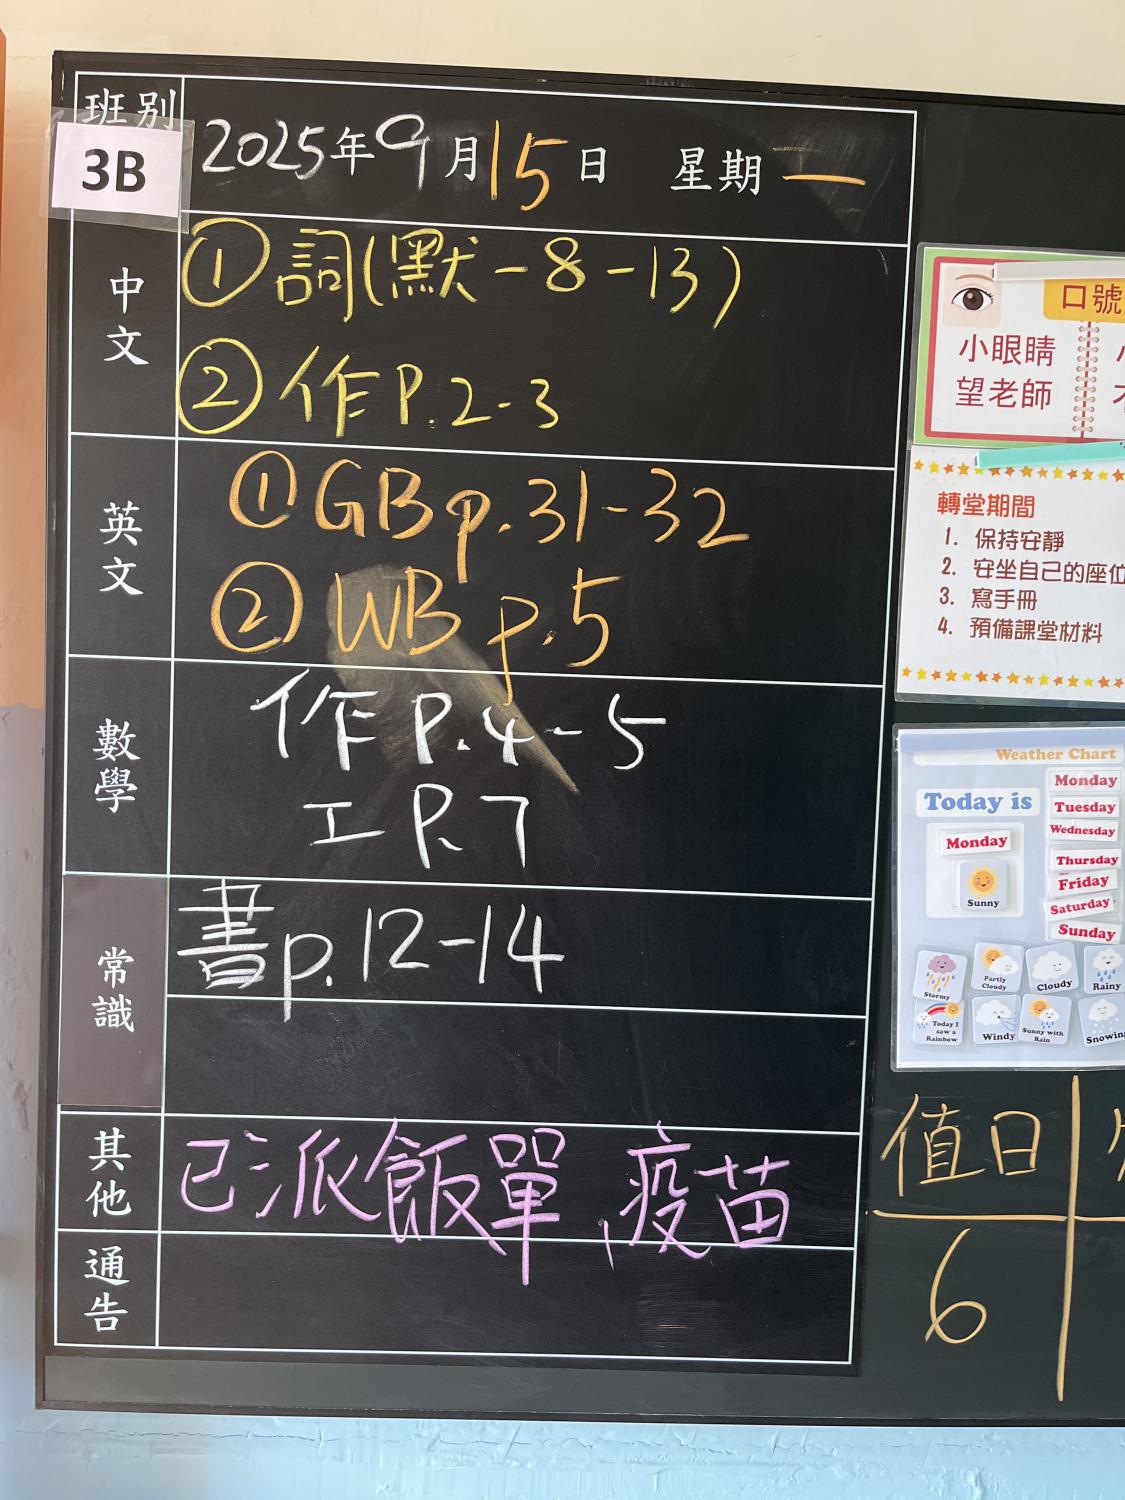 班別
3B
2025年9月15日 星期一
中文
①詞(默-8-13)
②作P.2-3
英文
①GB p.31-32
②WB p.5
數學
作P.4-5
工P.7
常識
書p.12-14
其他
已派飯單、疫苗
通告
口號
小眼睛
望老師
轉堂期間
1. 保持安靜
2. 安坐自己的座位
3. 寫手冊
4. 預備課堂材料
Weather Chart
Today is
Monday
Sunny
Monday
Tuesday
Wednesday
Thursday
Friday
Saturday
Sunday
Stormy
Partly Cloudy
Cloudy
Rainy
Today I saw a Rainbow
Windy
Sunny with Rain
Snowin
值日
6